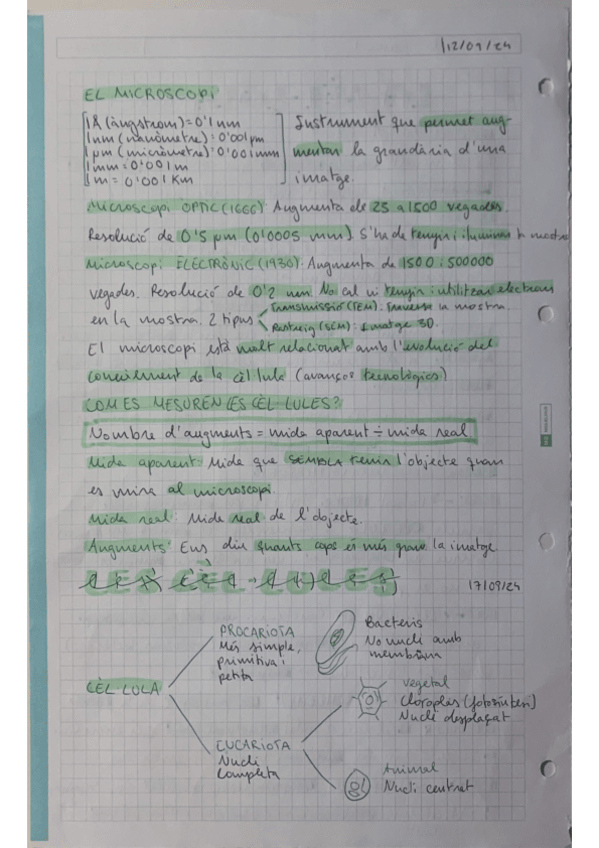 12/09/24
EL MICROSCOPI
1Å (àngstrom) = 0'1 nm
1nm (nanòmetre) = 0'001 µm
1 µm (micròmetre) = 0'001 mm
1mm = 0'001 m
1m = 0'001 Km
Instrument que permet aug-
mentar la grandària d'una
imatge.
Microscopi ÒPTIC (1666): Augmenta de 25 a 1500 vegades.
Resolució de 0'5 µm (0'0005 mm). S'ha de tenyir i iluminar la mostra
Microscopi ELECTRÒNIC (1930): Augmenta de 1500 i 500000
vegades. Resolució de 0'2 nm. No cal ni tenyir i utilitzen electrons
en la mostra. 2 tipus
TRANSMISSIÓ (TEM): Travessa la mostra.
Rastreig (SEM): Imatge 3D.
El microscopi està molt relacionat amb l'evolució del
coneixement de la cèl·lula (avanços tecnològics)
COM ES MESUREN LES CÈL·LULES?
Nombre d'augments = mida aparent ÷ mida real
Mida aparent: Mida que SEMBLA tenir l'objecte quan
es mira al microscopi.
Mida real: Mida real de l'objecte.
Augments: Ens diu quants cops és més gran la imatge
LES CÈL·LULES
17/09/24
CÈL·LULA
PROCARIOTA
Més simple,
primitiva i
petita
Bacteris
No nucli amb
membrana
EUCARIOTA
Nucli
Completa
Vegetal
Cloroplas (fotosíntesi)
Nucli desplaçat
Animal
Nucli centrat